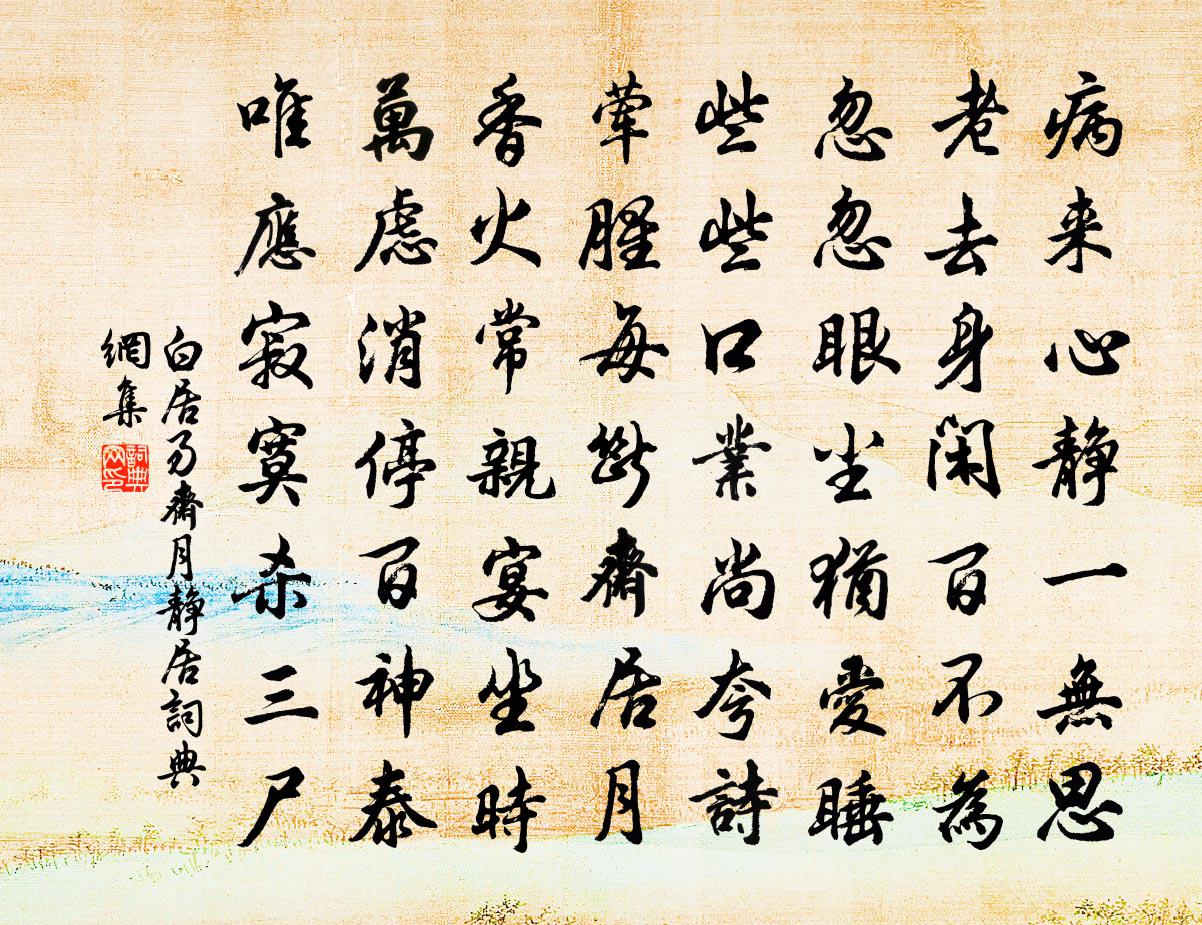 病来心静一無思
老去身閑百不為
忽忽眼尘猶愛睡
些些口業尚夸詩
荤腥每断齋居月
香火常親宴坐時
萬慮消停百神泰
唯應寂寞杀三尸
白居易齋月靜居詞典
網集
詞典網印